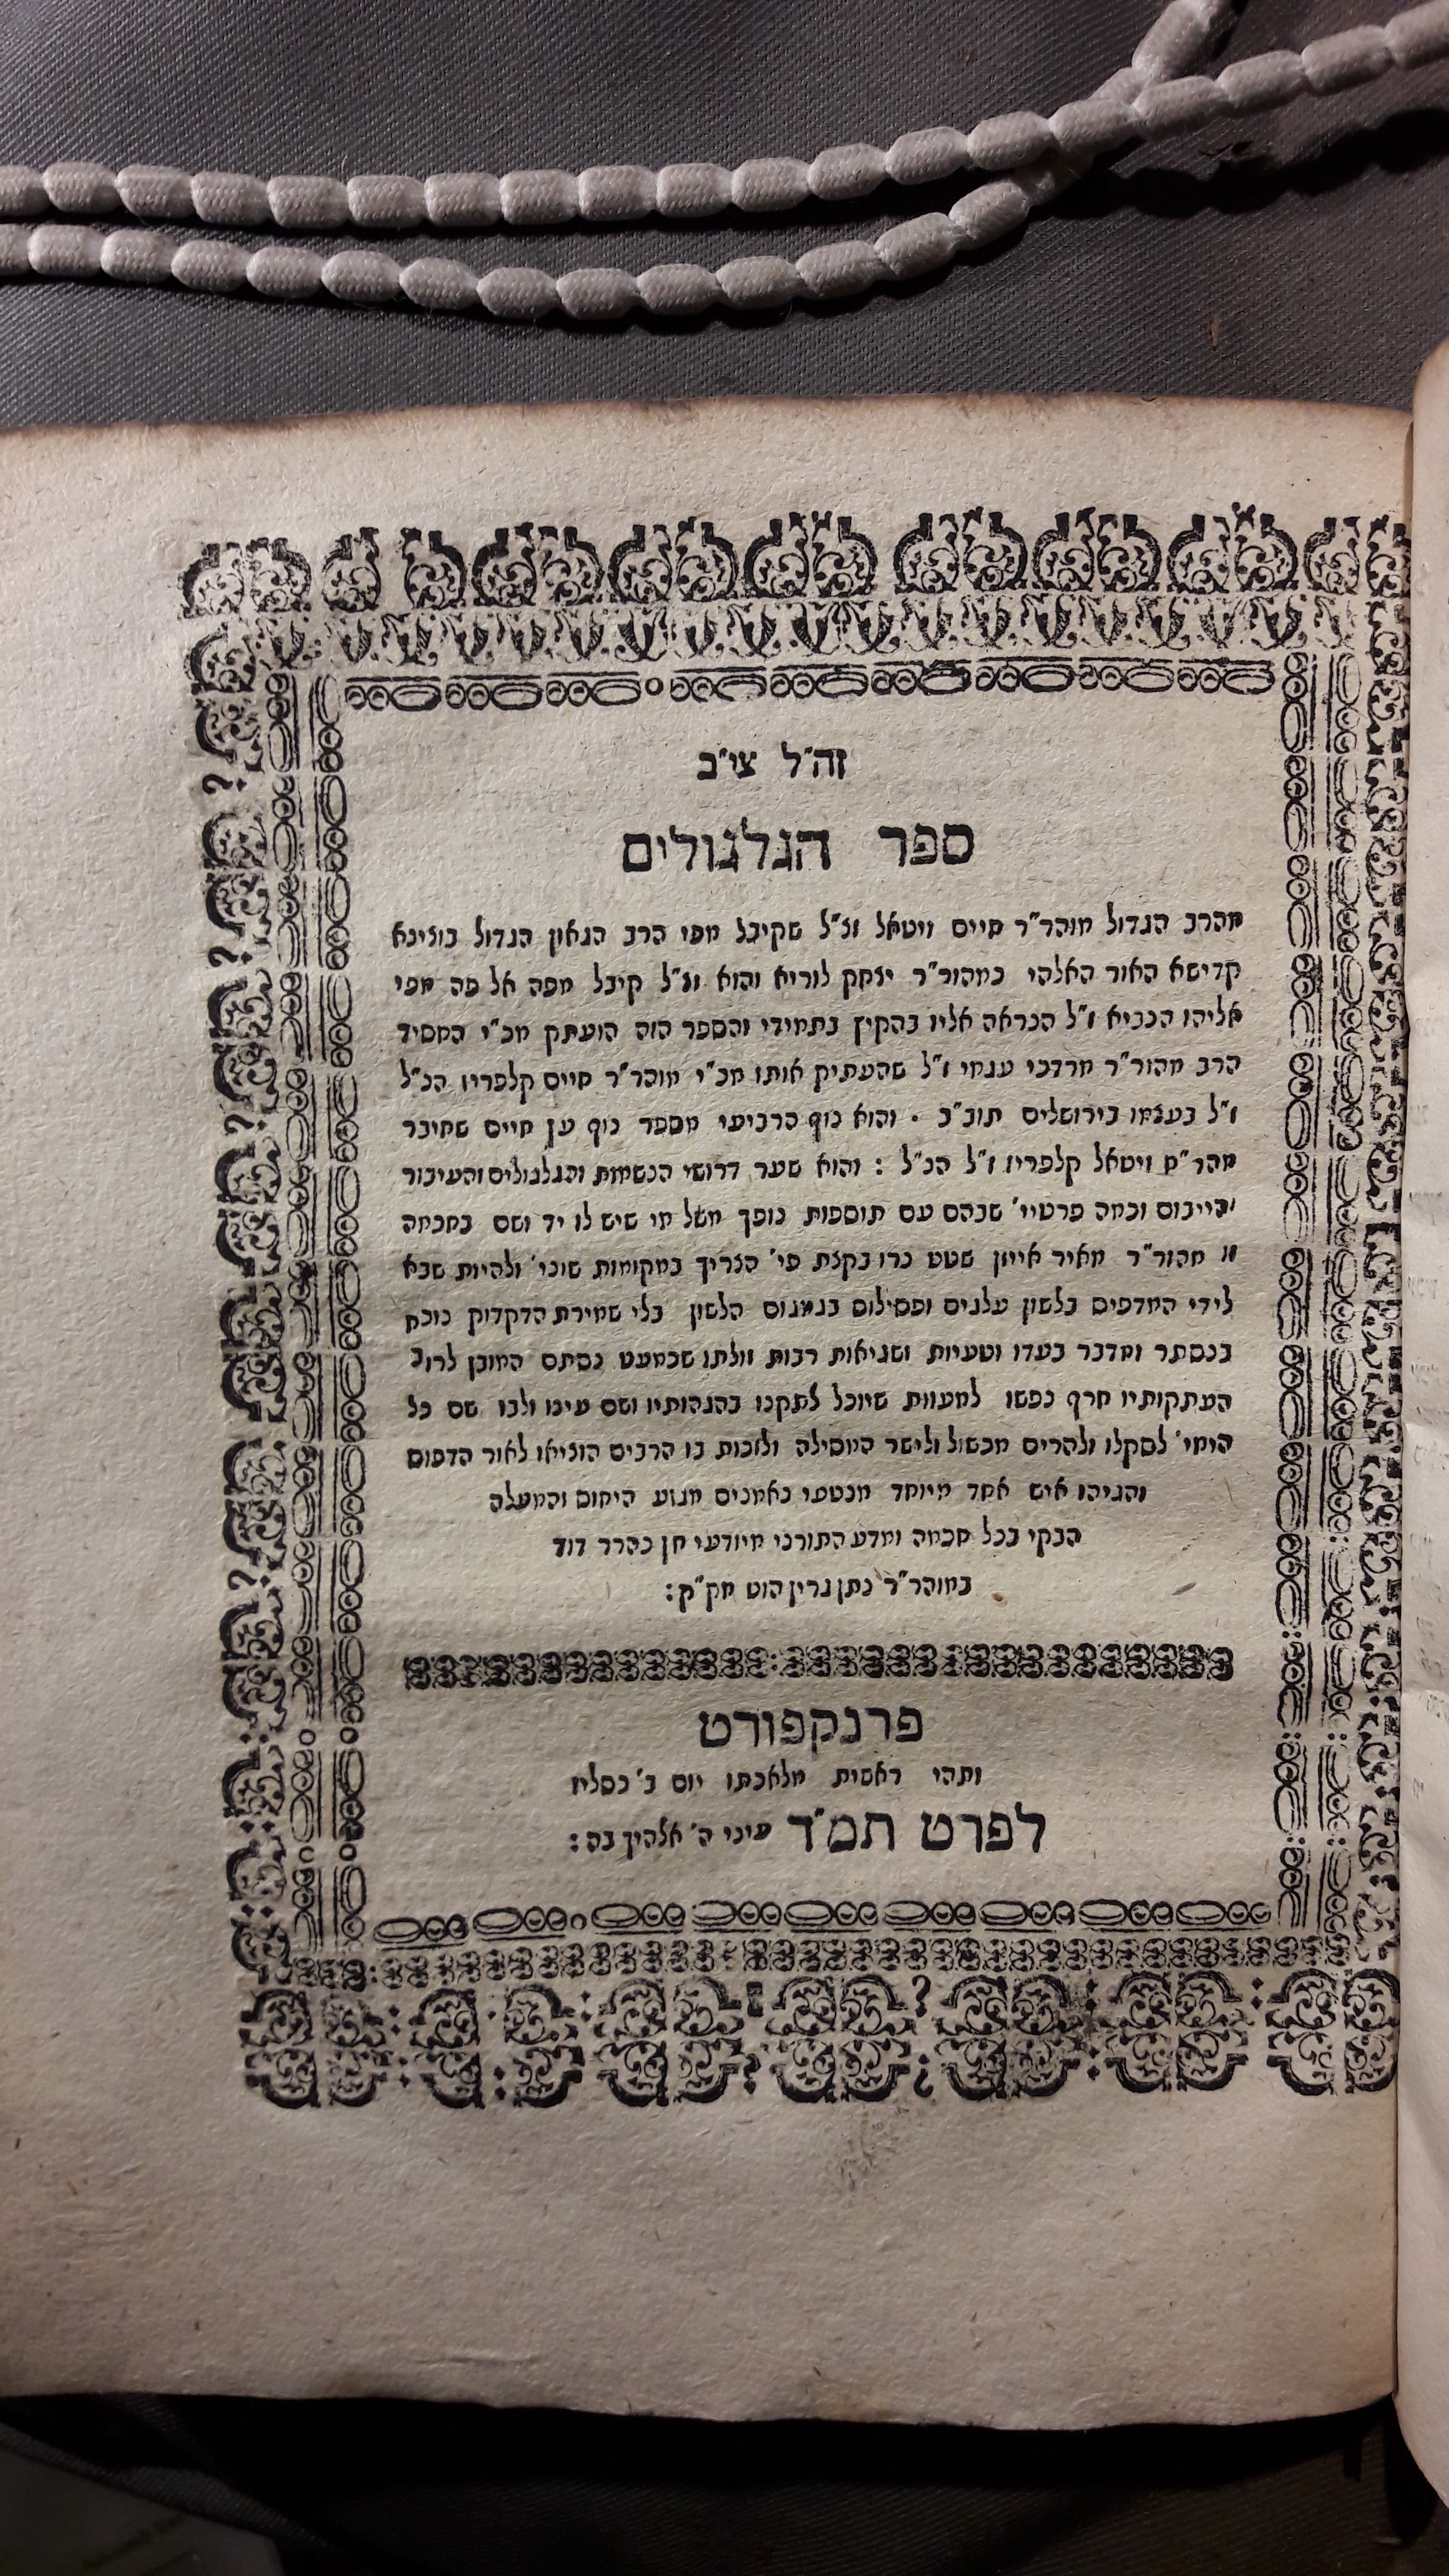 זה״ל צי״ב
ספר הגלגולים
מהרב הגדול מוהר״ר חיים וויטאל זצ״ל שקיבל מפי הרב הגאון הגדול בוצינא
קדישא האור האלהי כמהור״ר יצחק לוריא והוא זצ״ל קיבל מפה אל פה מפי
אליהו הנביא ז״ל הנראה אליו בהקיץ בתמידי והספר הזה הועתק מכ״י החסיד
הרב מהור״ר מרדכי ענחי ז״ל שהעתיק אותו מכ״י מוהר״ר חיים קלפריו הנ״ל
ז״ל בעצמו בירושלים תוב״ב . והוא נוף הרביעי מספר נוף עץ חיים שחיבר
מהר״ח וויטאל קלפריו ז״ל הנ״ל : והוא שער דרושי הנשמות והגלגולים והעיבור
והייבום וכמה פרטיי׳ שבהם עם תוספות נופך משל מי שיש לו יד ושם בחכמה
זו מהור״ר מאיר אייזן שטט נרו בקצת פי׳ הצריך במקומות שוני׳ ולהיות שבא
לידי המדפים בלשון עלגים ופסילום בגמגום הלשון בלי שמירת הדקדוק נוכח
בנסתר ומדבר בעדו וטעיות ושגיאות רבות זולתו שכמעט נסתם המובן לרוב
העתקותיו חרף נפשו למעוות שיוכל לתקנו בהגהותיו ושם עינו ולבו שם כל
הימי׳ לסקלו ולהרים מכשול ולישר המסילה ולזכות בו הרבים הוציאו לאור הדפוס
והגיהו איש אחד מיוחד מנטעי נאמנים מגזע היחוס והמעלה
הבקי בכל חכמה ומדע התורני מיודעי חן כהרר דוד
במוהר״ר נתן גרין הוט מק״ק :
פרנקפורט
ותהי ראשית מלאכתו יום ב׳ כסליו
לפרט תמ״ד עיני ה׳ אלהיך בה :